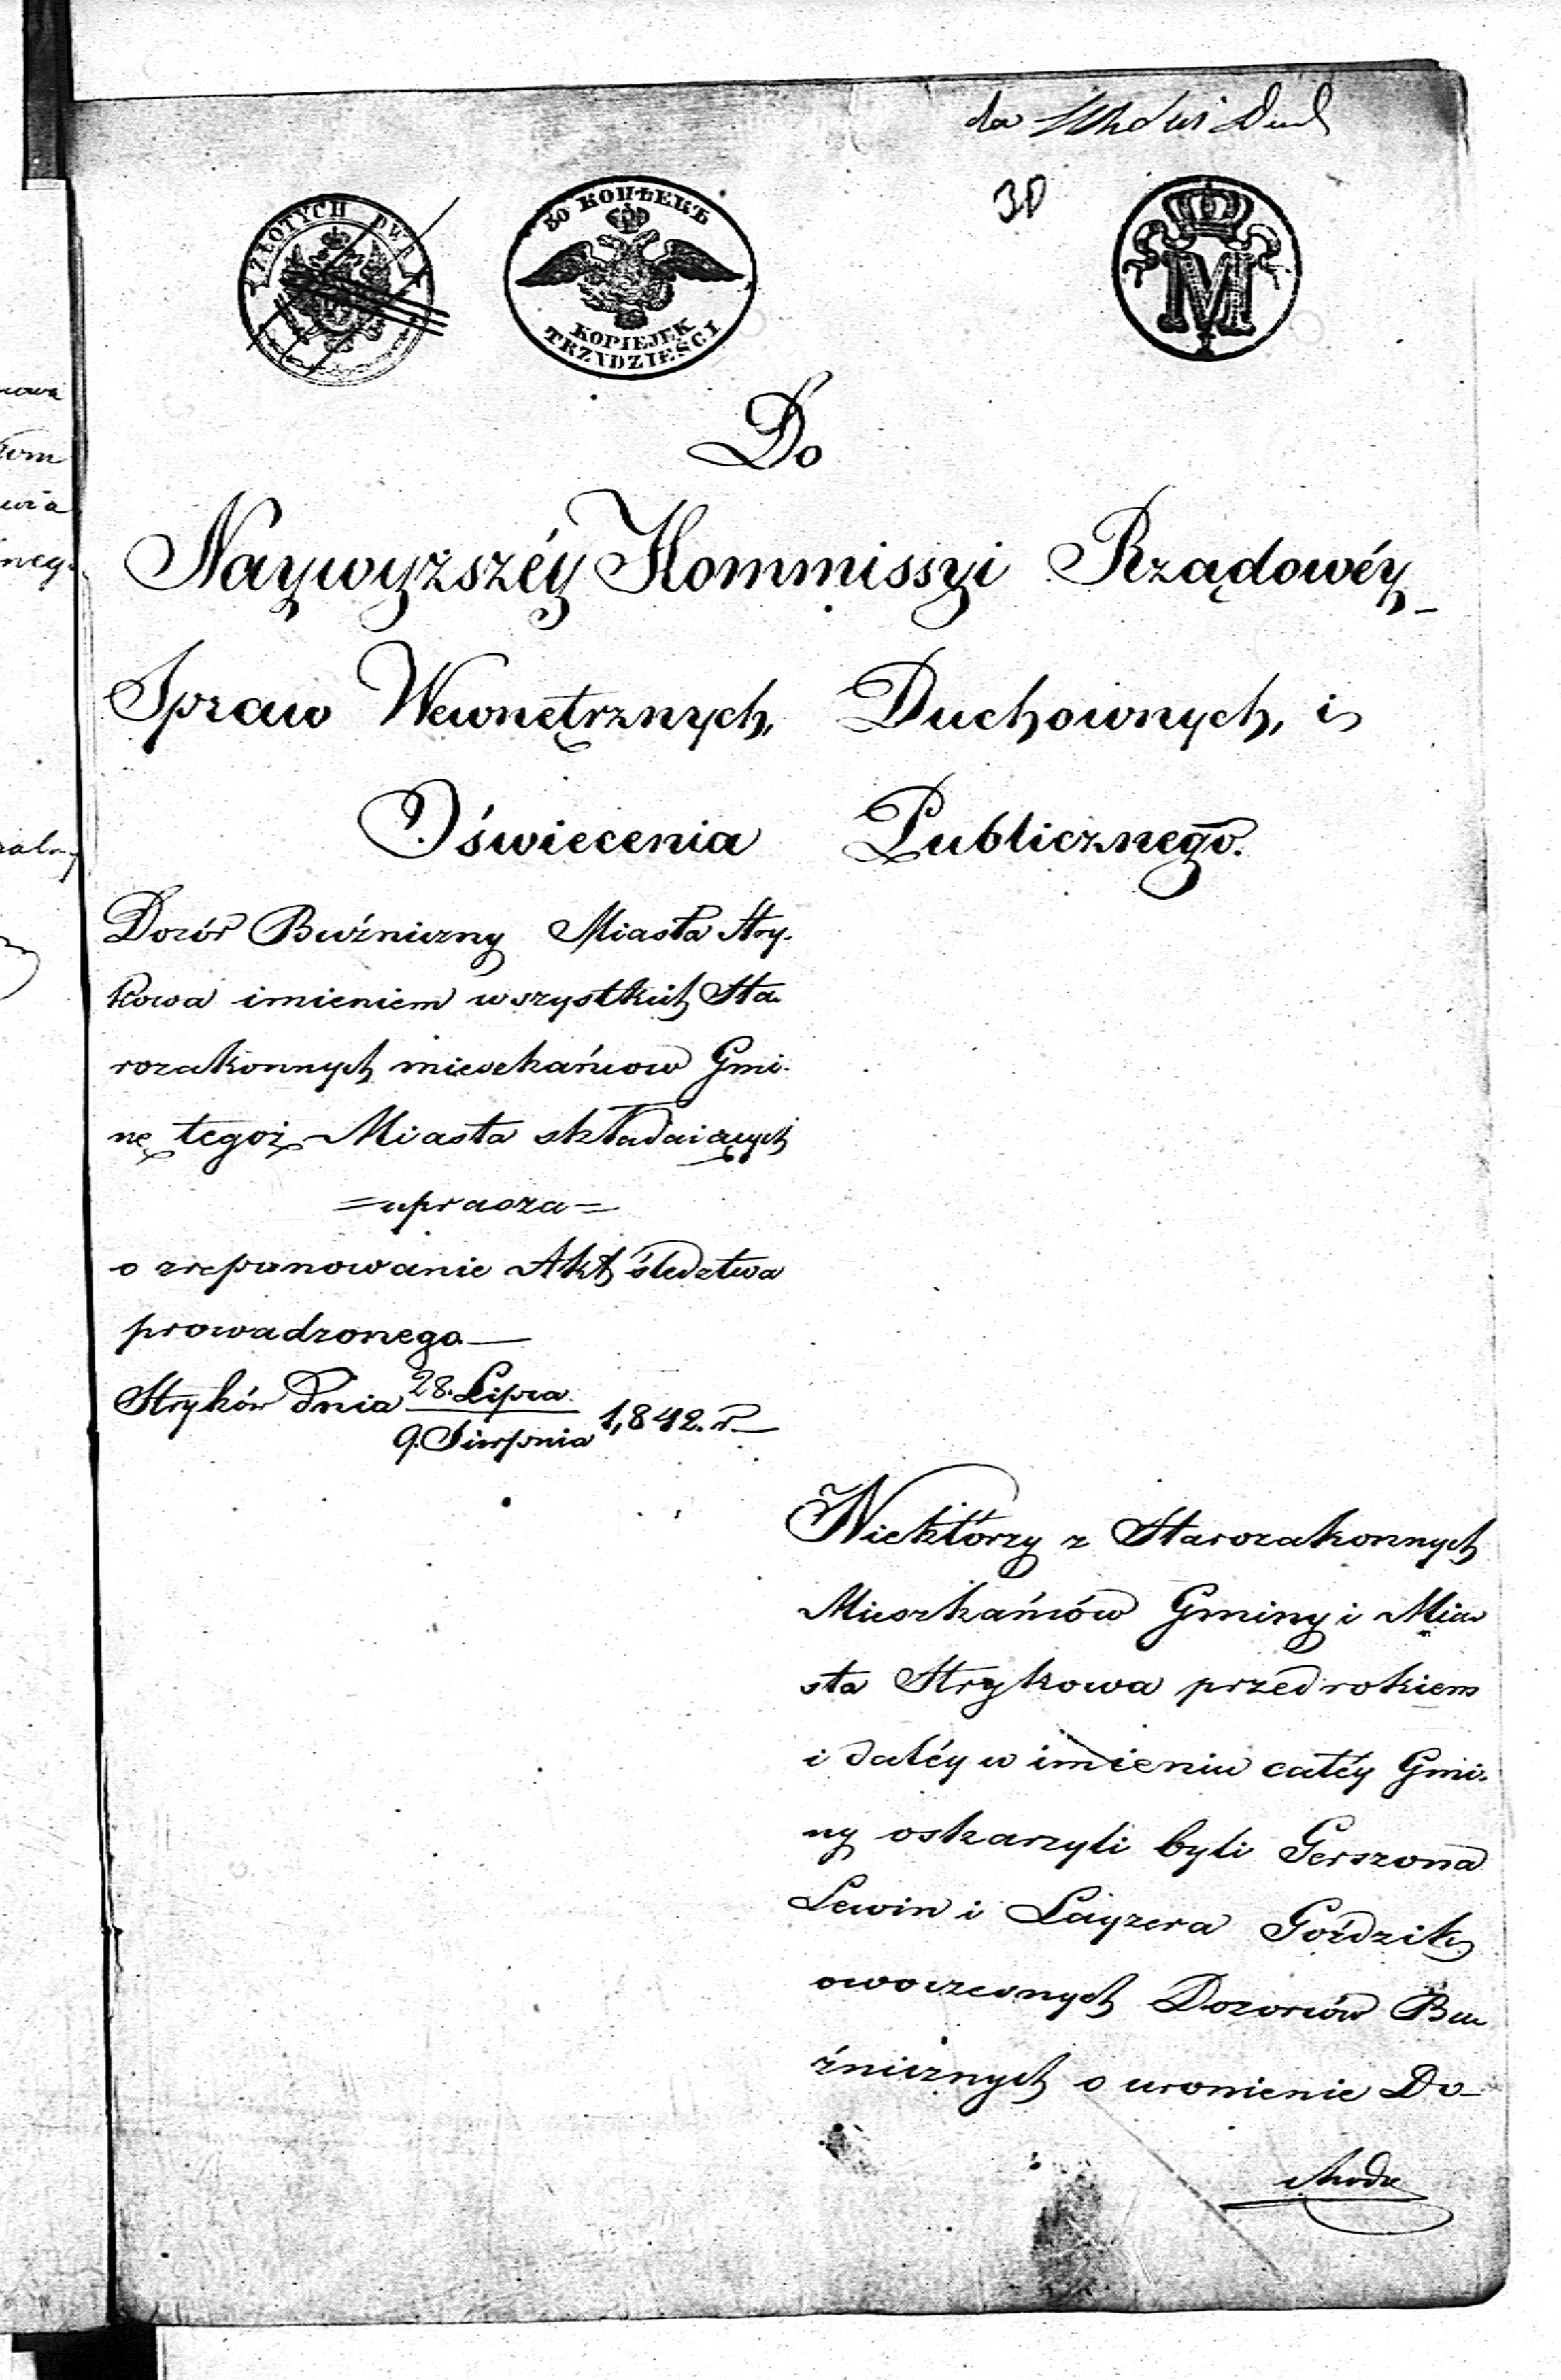 30
ZŁOTYCH DWA
30 КОПѢЕКЪ
KOPIEJEK
TRZYDZIEŚCI
M
Do
Naywyższéy Kommissyi Rządowéy
Spraw Wewnętrznych, Duchownych, i
Oświecenia Publicznego.
Dozór Bużniczny Miasta Stry-
kowa imieniem wszystkich Sta-
rozakonnych mieszkańcow Gmi-
nę tegoż Miasta składaiących
=uprasza=
o zrepanowanie Akt śledztwa
prowadzonego—
Stryków Dnia 28. Lipca
9. Sierpnia 1,842. r—
Niektórzy z Starozakonnych
Mieszkańców Gminy i Mia-
sta Strykowa przed rokiem
i daléy w imieniu całéy Gmi-
ny oskarzyli byli Gerszona
Lewin i Layzera Goździk
owoczesnych Dozorców Bu-
żnicznych o uronienie Do-
chodu